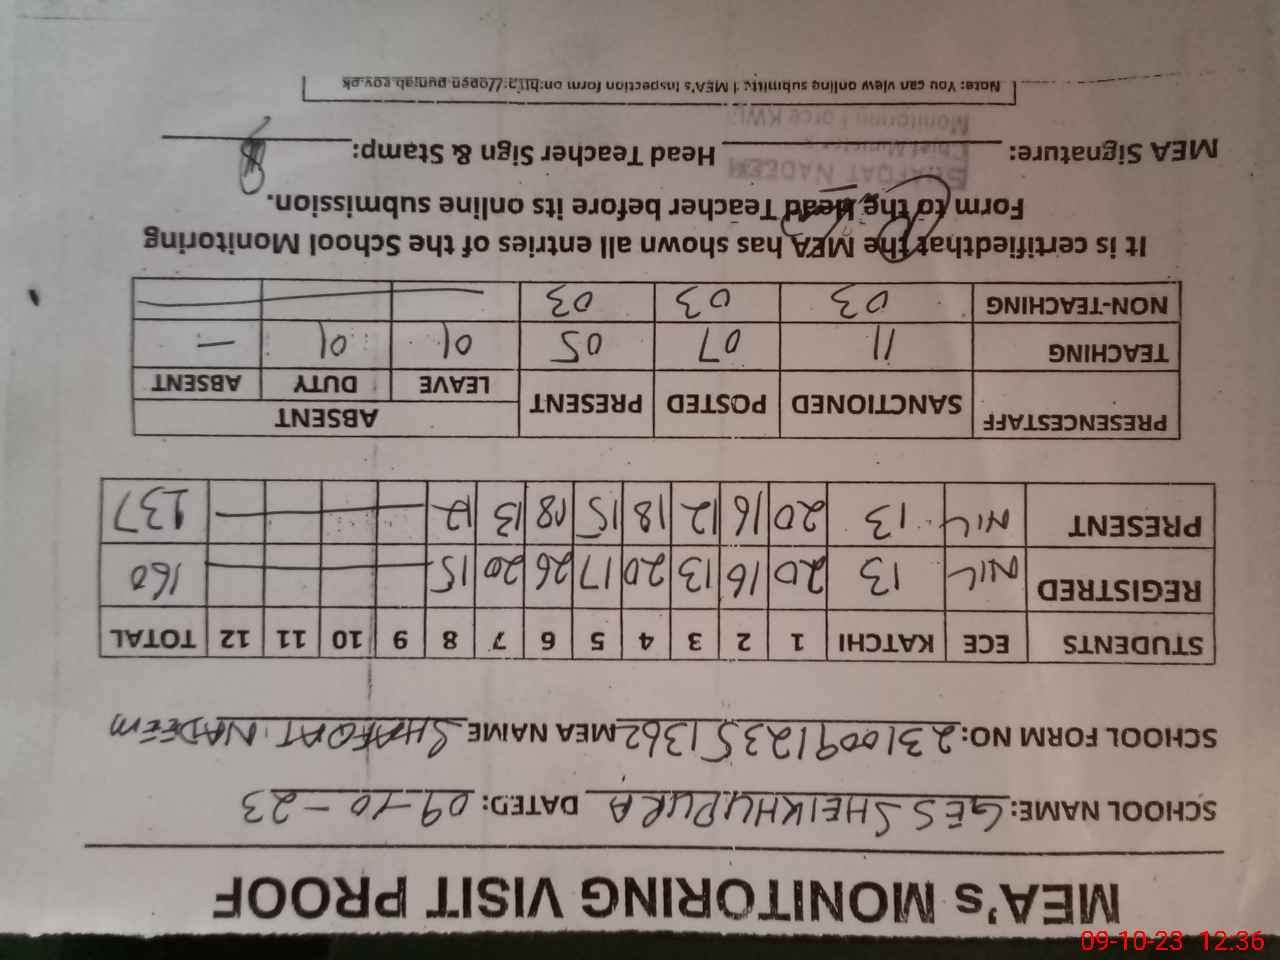 MEA's MONITORING VISIT PROOF
SCHOOL NAME: GES SHEIKHUPURA DATED: 09-10-23
SCHOOL FORM NO: 23100912351362 MEA NAME SHAFQAT NADEEM
STUDENTS ECE KATCHI 1 2 3 4 5 6 7 8 9 10 11 12 TOTAL
REGISTRED NIL 13 20 16 13 20 17 26 20 15 160
PRESENT NIL 13 20 16 12 18 15 18 13 12 137
PRESENCESTAFF SANCTIONED POSTED PRESENT ABSENT
LEAVE DUTY ABSENT
TEACHING 11 07 05 01 01 —
NON-TEACHING 03 03 03
It is certifiedthat the MEA has shown all entries of the School Monitoring
Form to the Head Teacher before its online submission.
SHAFQAT NADEEM
MEA Signature: Head Teacher Sign & Stamp:
Chief Minister's
Monitoring Force KWL
Note: You can view online submitted MEA's Inspection form on:http://open.punjab.gov.pk
09-10-23 12:36